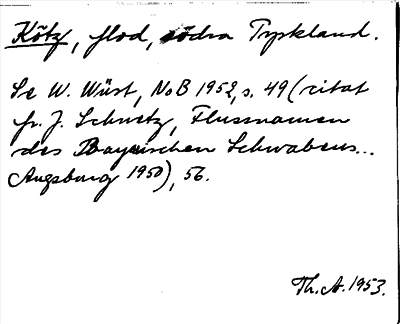 Kötz, flod, södra Tyskland.
Se W. Wüst, NoB 1952, s. 49 (citat
fr. J. Schnetz, Flussnamen
des Bayerischen Schwabens...
Augsburg 1950), 56.
Th. A. 1953.